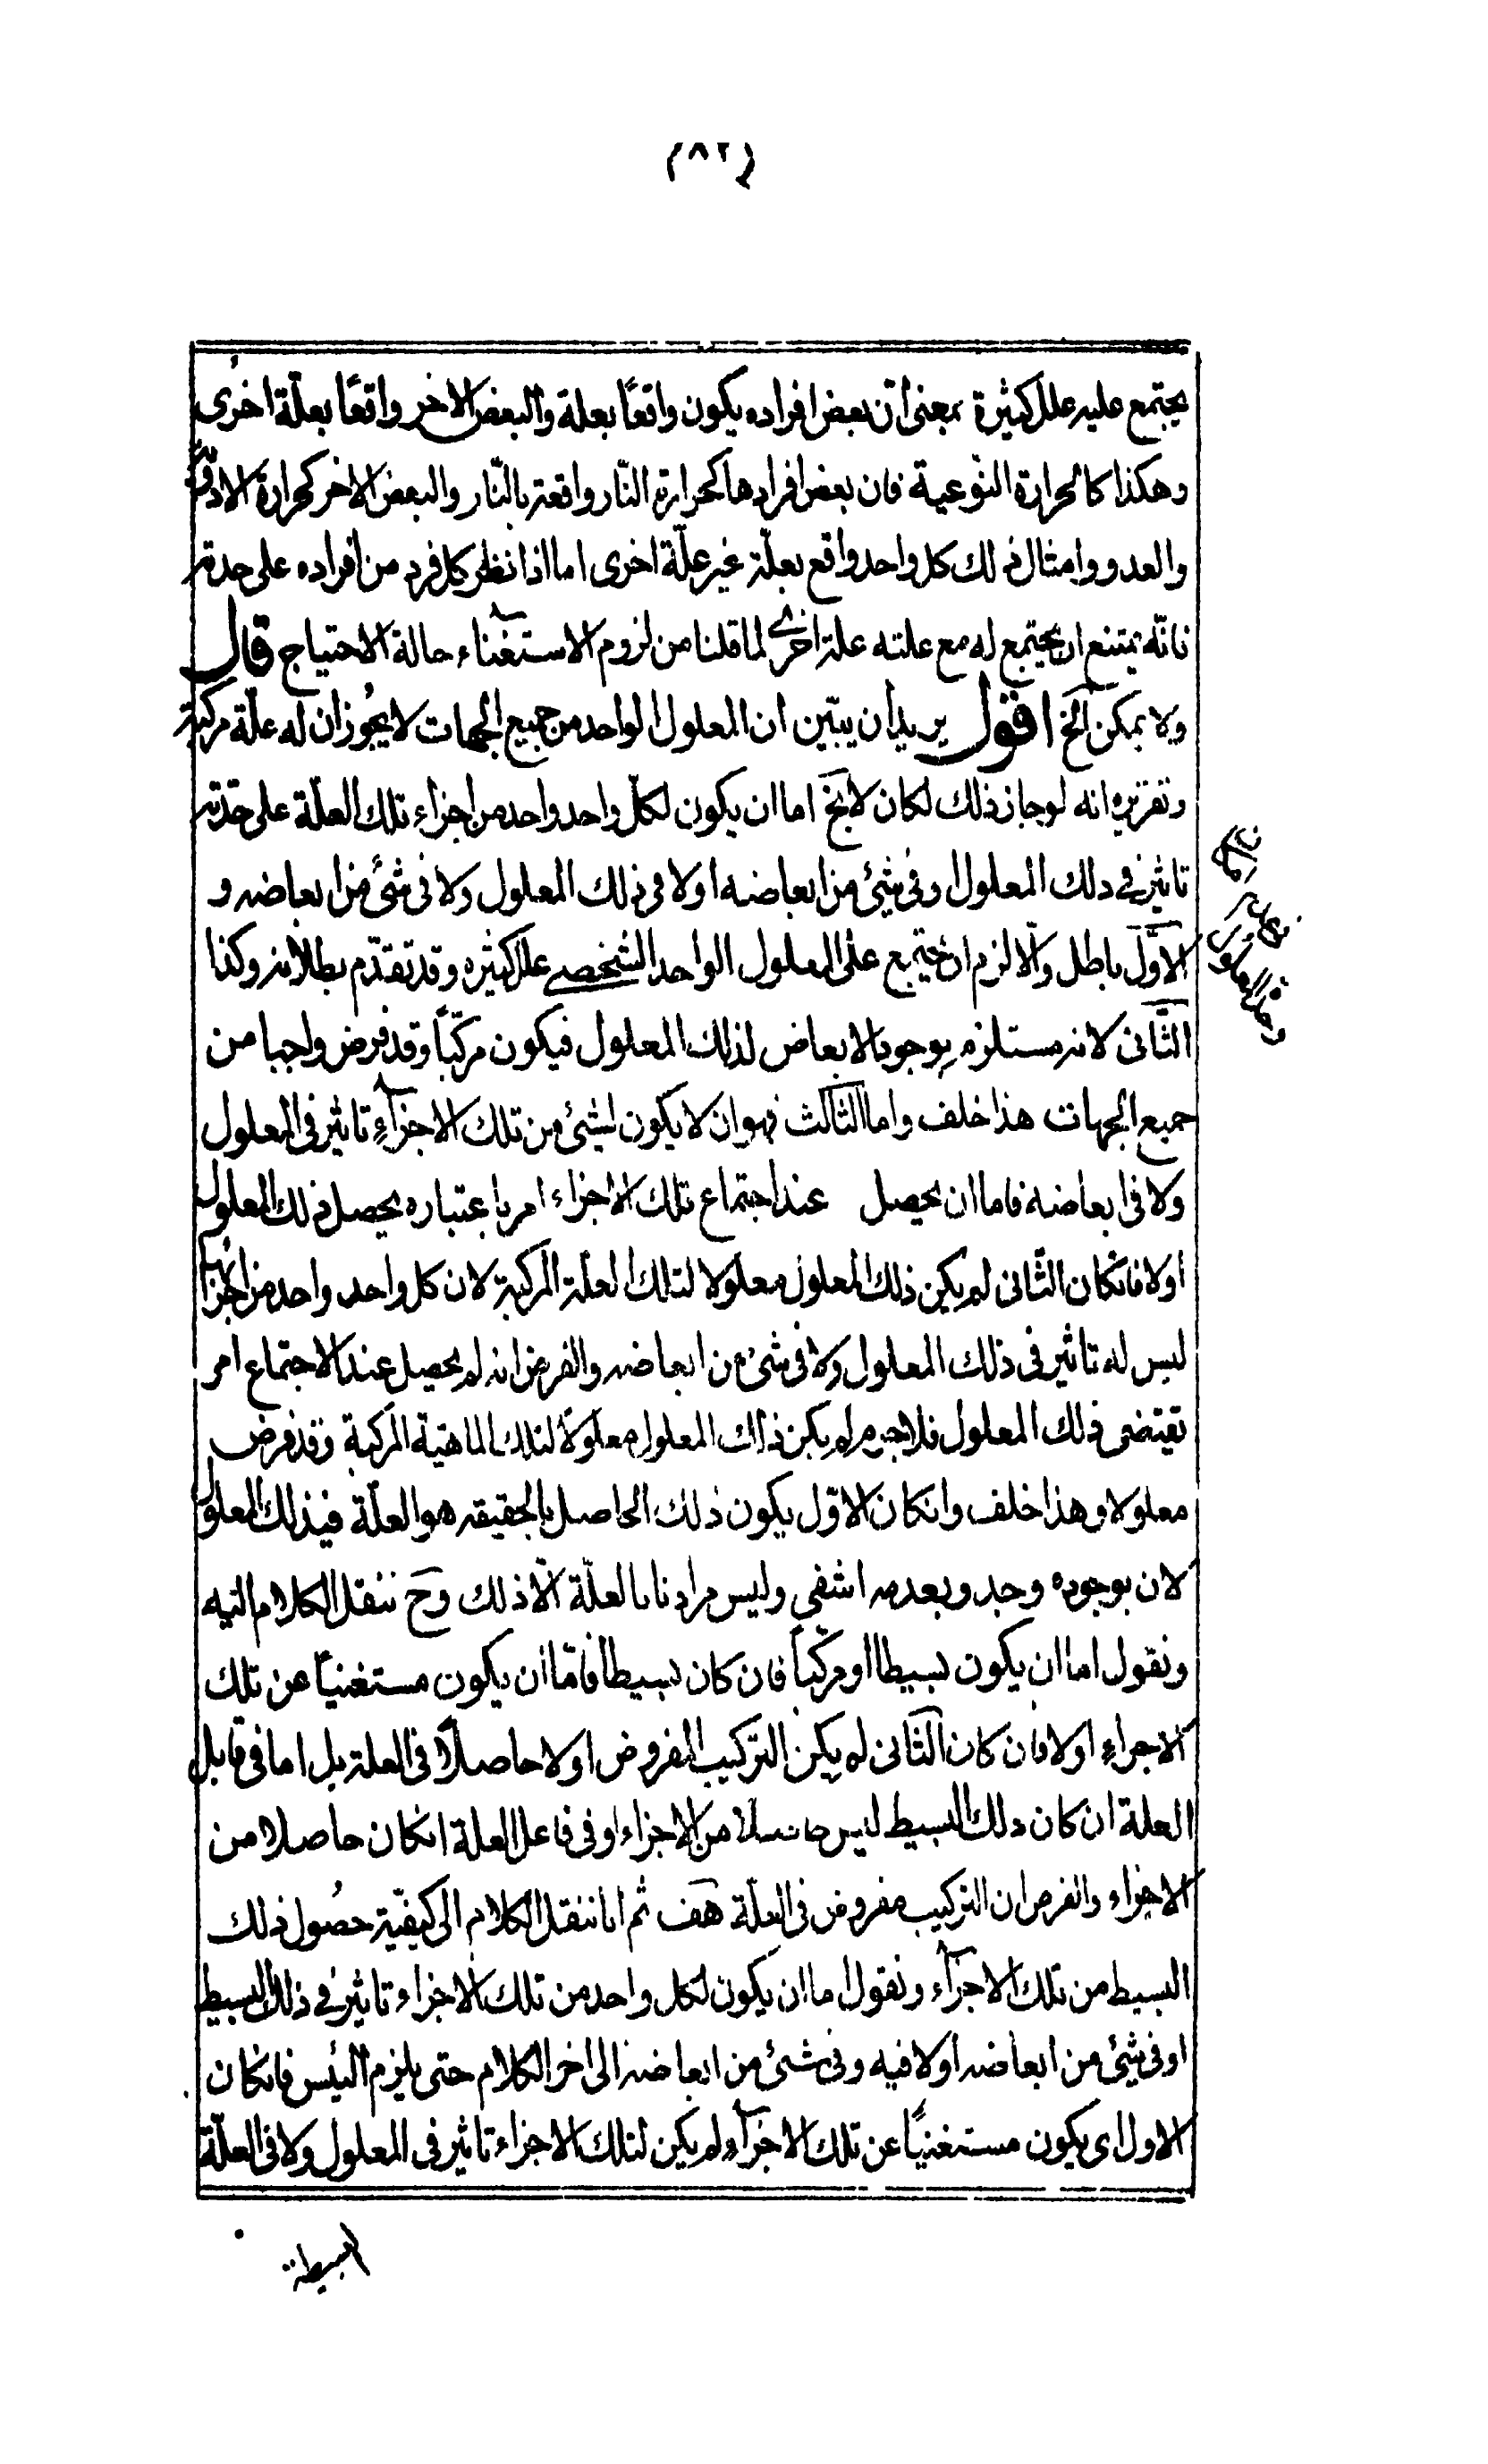 (٨٢)
يجتمع عليه علل كثيرة بمعنى أن بعض افراده يكون واقعًا بعلة والبعض الاخر واقعًا بعلّة اخرى
وهكذا كالحرارة النوعية فان بعض افرادها كحرارة النّار واقعة بالنّار والبعض الاخر كحرارة الادوية
والعدو وامثال ذلك كل واحد واقع بعلّة غير علّة اخرى اما اذا نظر كل فرد من افراده على حدة
فانّه يمتنع ان يجتمع له مع علته علة اخرى لما قلنا من لزوم الاستغناء حالة الاحتياج قال
ولا يمكن الخ اقول يريد أن يبيّن ان المعلول الواحد من جميع الجهات لا يجوز ان له علّة مركبة
وتقريره انه لو جاز ذلك لكان لا يخ اما ان يكون لكل واحد واحد من اجزاء تلك العلّة على حدته
تاثير في ذلك المعلول او في شئ من ابعاضه او لا في ذلك المعلول ولا في شئ من ابعاضه و
الاوّل باطل والّا لزم ان يجتمع على المعلول الواحد الشخصي علل كثيره وقد تقدّم بطلانه وكذا
الثّانى لانه مستلزم بوجود الابعاض لذلك المعلول فيكون مركّبًا وقد فرض واحدا من
جميع الجهات هذا خلف واما الثالث فهو ان لا يكون لشئ من تلك الاجزاء تاثير في المعلول
ولا فى ابعاضه فاما ان يحصل عند اجتماع تلك الاجزاء امر باعتباره يحصل ذلك المعلول
اولا فانكان الثّانى لم يكن ذلك المعلول معلولا لتلك العلّة المركبة لان كل واحد واحد من اجزائها
ليس له تاثير فى ذلك المعلول ولا فى شئ من ابعاضه والفرض انه لم يحصل عند الاجتماع امر
تقتضى ذلك المعلول فلا جرم لم يكن ذلك المعلول معلولًا لتلك الماهيّة المركبة وقد فرض
معلولا وهذا خلف وانكان الاوّل يكون ذلك الحاصل بالحقيقه هو العلّة فيذلك المعلول
لان بوجوده وجد وبعدمه انتفى وليس مرادنا بالعلّة الّا ذلك وح ننقل الكلام اليه
ونقول اما ان يكون بسيطا او مركّبًا فان كان بسيطا فامّا ان يكون مستغنيًا عن تلك
الاجزاء اولا فان كان الثّانى لم يكن التركيب المفروض اولا حاصلًا فى العلة بل اما فى قابل
العلة ان كان ذلك البسيط ليس حاصلا من الاجزاء او فى فاعل العلة انكان حاصلا من
الاجزاء والفرض ان التركيب مفروض فى العلّة هف ثم انا ننقل الكلام الى كيفيّة حصُول ذلك
البسيط من تلك الاجزاء ونقول اما ان يكون لكل واحد من تلك الاجزاء تاثير في ذلك البسيط
او فى شئ من ابعاضه اولا فيه وفى شئ من ابعاضه الى اخر الكلام حتى يلزم التس فانكان
الاول اى يكون مستغنيًا عن تلك الاجزاء لم يكن لتلك الاجزاء تاثير فى المعلول ولا فى العلّة
البسيطة